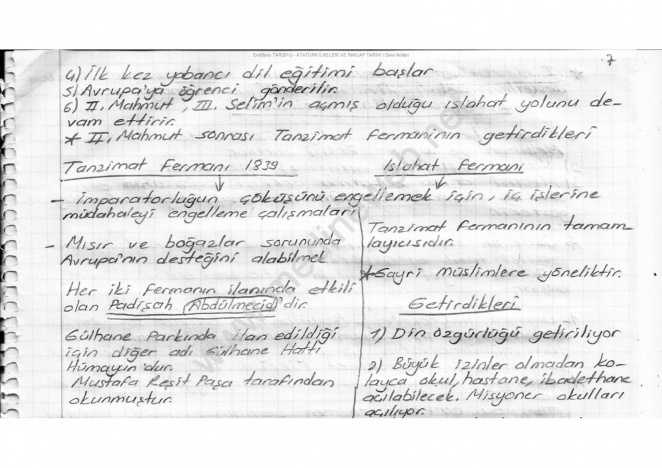 7
4) İlk kez yabancı dil eğitimi başlar
5) Avrupa'ya öğrenci gönderilir.
6) II. Mahmut, III. Selim'in açmış olduğu ıslahat yolunu de-
vam ettirir.
* II. Mahmut sonrası Tanzimat Fermanının getirdikleri
Tanzimat Fermanı 1839
- imparatorluğun çöküşünü engellemek için, iç işlerine
müdahaleyi engelleme çalışmaları
- Mısır ve boğazlar sorununda
Avrupa'nın desteğini alabilmek
Her iki Fermanın ilanında etkili
olan Padişah Abdülmecid'dir.
Gülhane Parkında ilan edildiği
için diğer adı Gülhane Hattı
Hümayun'dur.
Mustafa Reşit Paşa tarafından
okunmuştur.
Islahat Fermanı
Tanzimat Fermanının tamam-
layıcısıdır.
* Gayri müslimlere yöneliktir.
Getirdikleri
1) Din özgürlüğü getiriliyor
2) Büyük izinler olmadan ko-
layca okul, hastane, ibadethane
açılabilecek. Misyoner okulları
açılıyor.